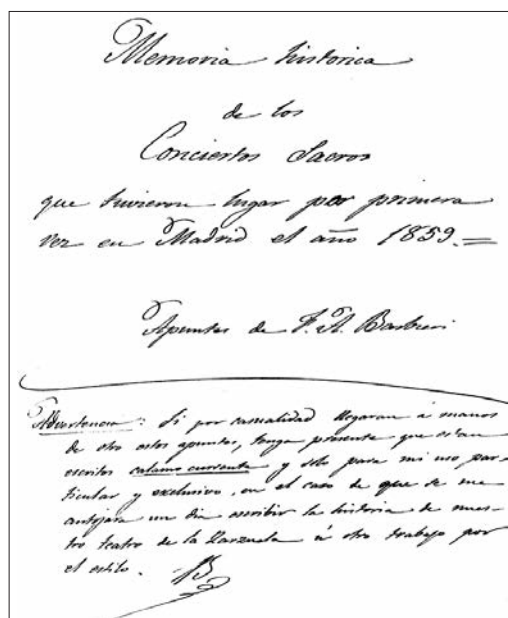 Memoria historica
de los
Conciertos Sacros
que tuvieron lugar por primera
vez en Madrid el año 1859.=
Apuntes de F. A. Barbieri
Advertencia: Si por casualidad llegaran á manos
de otro estos apuntes, tenga presente que estan
escritos calamo currente y solo para mi uso par-
ticular y exclusivo, en el caso de que se me
antojara un dia escribir la historia de nues-
tro teatro de la Zarzuela ú otro trabajo por
el estilo. B